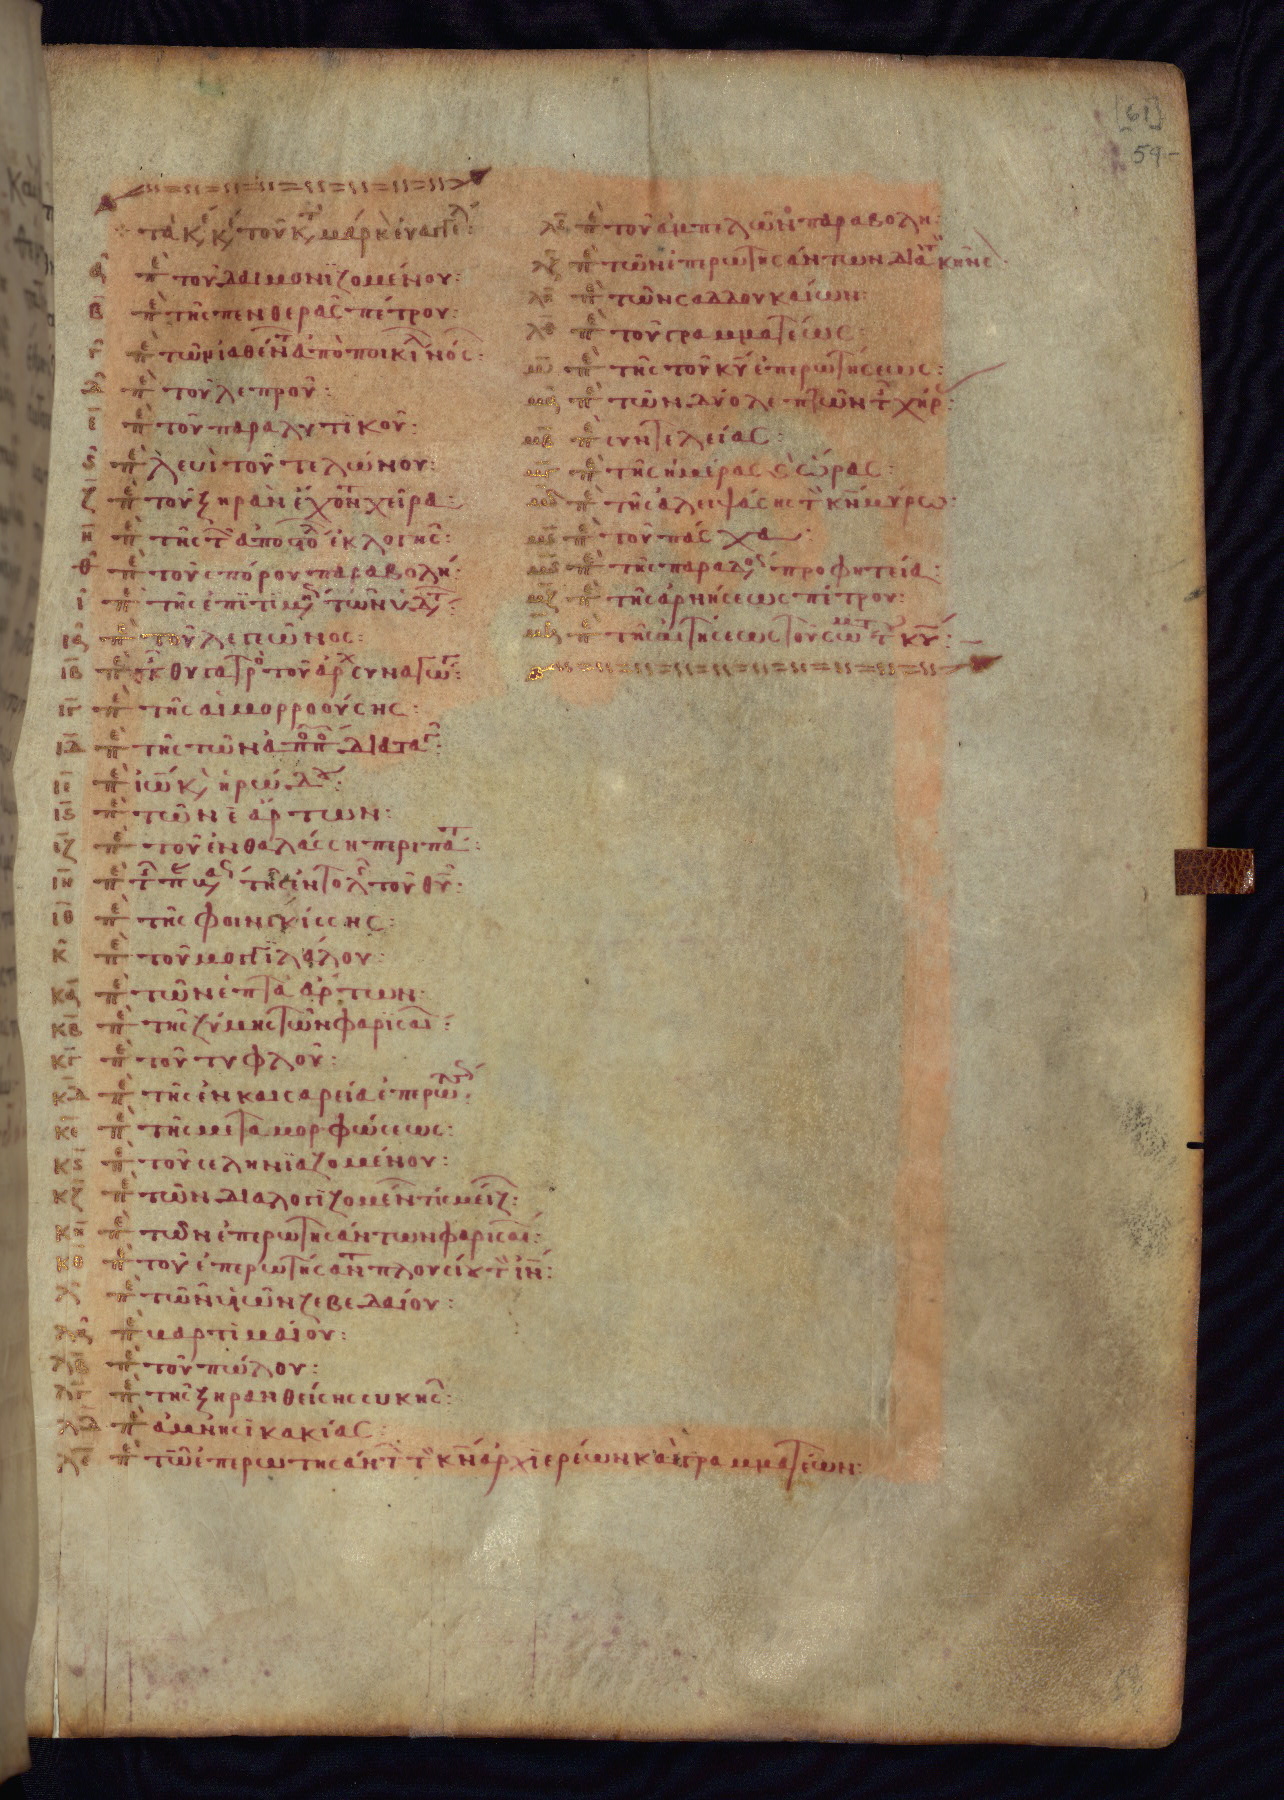 [61]
59-
τὰ κ, κ, τοῦ κτ μάρκ εὐαγγελ:
α περὶ τοῦ δαιμονϊζομένου:
β περὶ τῆς πενθερᾶς πέτρου:
γ περὶ τῶν ἰαθέντ ἀπὸ ποικίλ νός:
δ περὶ τοῦ λεπροῦ:
ε περὶ τοῦ παραλυτϊκοῦ:
ς περὶ λευὶ τοῦ τελώνου:
ζ περὶ τοῦ ξηρὰν ἔχοντ χεῖρα:
η περὶ τῆς τ ἀποστολ ἐκλογῆς:
θ περὶ τοῦ σπόρου παραβολή:
ι περὶ τῆς ἐπϊτιμ τῶν ὑδ:
ια περὶ τοῦ λεγεῶνος:
ιβ περὶ τ θυγατρὸ τοῦ ἀρχ συναγωγ:
ιγ περὶ τῆς αἱμορροούσης:
ιδ περὶ τῆς τῶν ἀποπ διαταγ:
ιε περὶ ἰω κ, ηρώδ:
ις περὶ τῶν ε ἄρτων:
ιζ περὶ τοῦ ἐν θαλάσση περιπάτ:
ιη περὶ τ π τῆς ἐντολ τοῦ θυ:
ιθ περὶ τῆς φοινικίσσης:
κ περὶ τοῦ μογγϊλάλου:
κα περὶ τῶν ἑπτὰ ἄρτων:
κβ περὶ τῆς ζύμης τῶν φαρϊσαί:
κγ περὶ τοῦ τυφλοῦ:
κδ περὶ τῆς ἐν καισαρεία ἐπερωτ:
κε περὶ τῆς μεταμορφώσεως:
κς περὶ τοῦ σεληνϊαζομένου:
κζ περὶ τῶν διαλογϊζομέν τίς μείζ:
κη περὶ τῶν ἐπερωτησάντων φαρισαί:
κθ περὶ τοῦ ἐπερωτήσαντ πλουσίου τ ιν:
λ περὶ τῶν ὑιῶν ζεβεδαίου:
λα περὶ μαρτιμαίου:
λβ περὶ τοῦ πώλου:
λγ περὶ τῆς ξηρανθείσης συκῆς:
λδ περὶ ἀμνησϊκακίας:
λε περὶ τῶ ἐπερωτησάντ τ κν ἀρχϊερέων καὶ γραμματέων:
λς περὶ τοῦ ἀμπελῶνο παραβολή:
λζ περὶ τῶν ἐπερωτησάντων διὰ τ κηνς
λη περὶ τῶν σαδδουκαίων:
λθ περὶ τοῦ γραμματέως:
μ περὶ τῆς τοῦ κυ ἐπερωτήσεως:
μα περὶ τῶν δύο λεπτῶν τ χήρ:
μβ περὶ συντελείας:
μγ περὶ τῆς ἡμέρας καὶ ὥρας:
μδ περὶ τῆς ἀλειψάσης τ κν μύρω:
με περὶ τοῦ πάσχα:
μς περὶ τῆς παραδό προφητεία:
μζ περὶ τῆς ἀρνήσεως πέτρου:
μη περὶ τῆς αἰτήσεως τοῦ σώματ τ κυ: